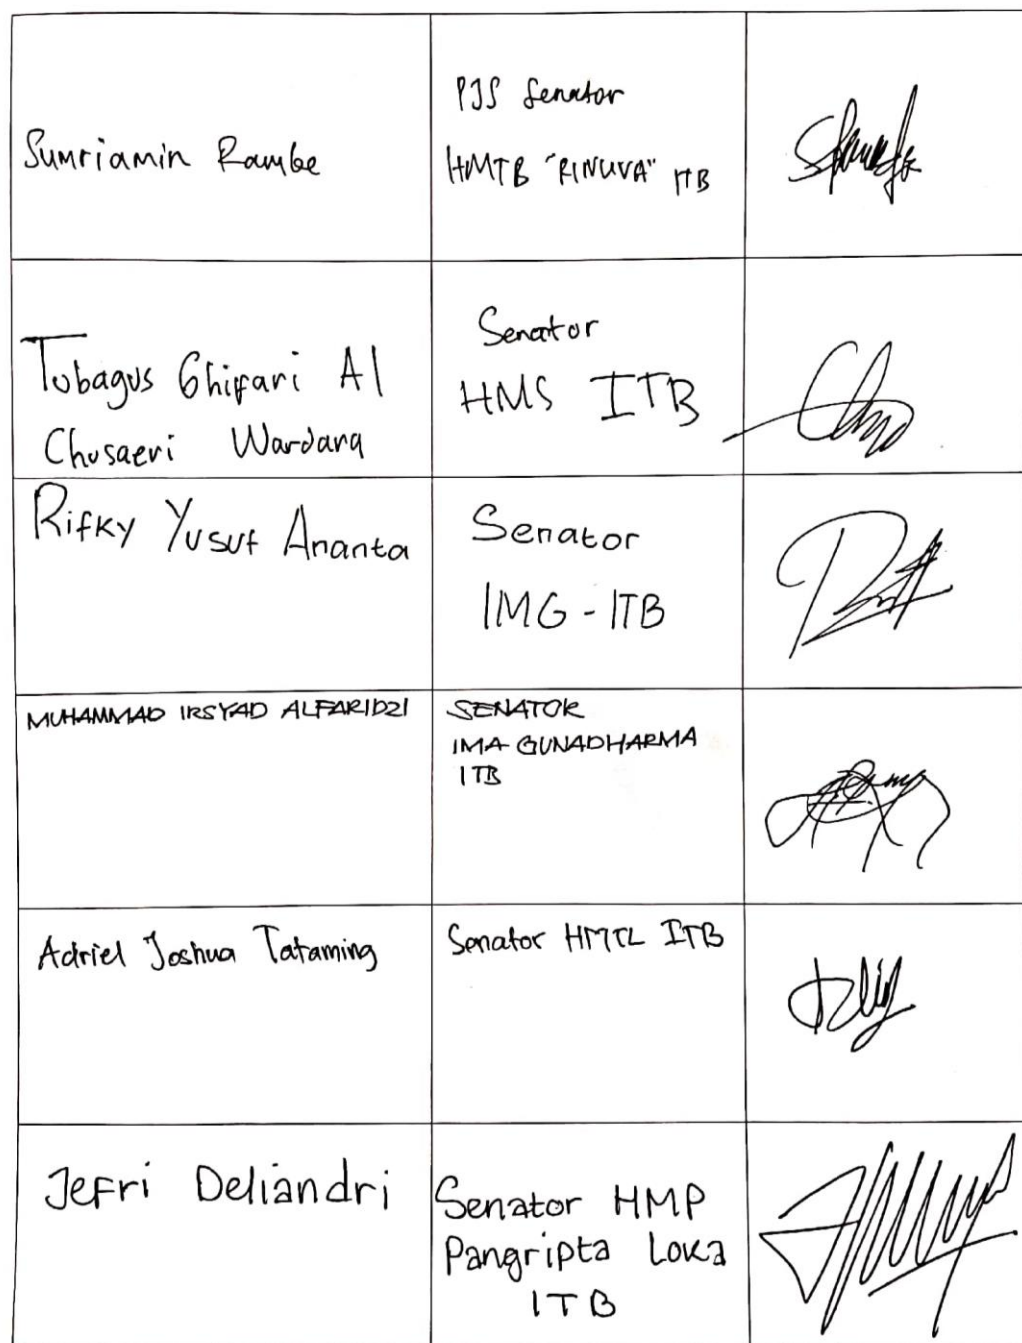 Sumriamin Rambe
PJS Senator
HMTB "RINUVA" ITB
Tubagus Ghifari Al
Chusaeri Wardana
Senator
HMS ITB
Rifky Yusuf Ananta
Senator
IMG - ITB
MUHAMMAD IRSYAD ALFARIDZI
SENATOR
IMA GUNADHARMA
ITB
Adriel Joshua Tataming
Senator HMTL ITB
Jefri Deliandri
Senator HMP
Pangripta Loka
ITB